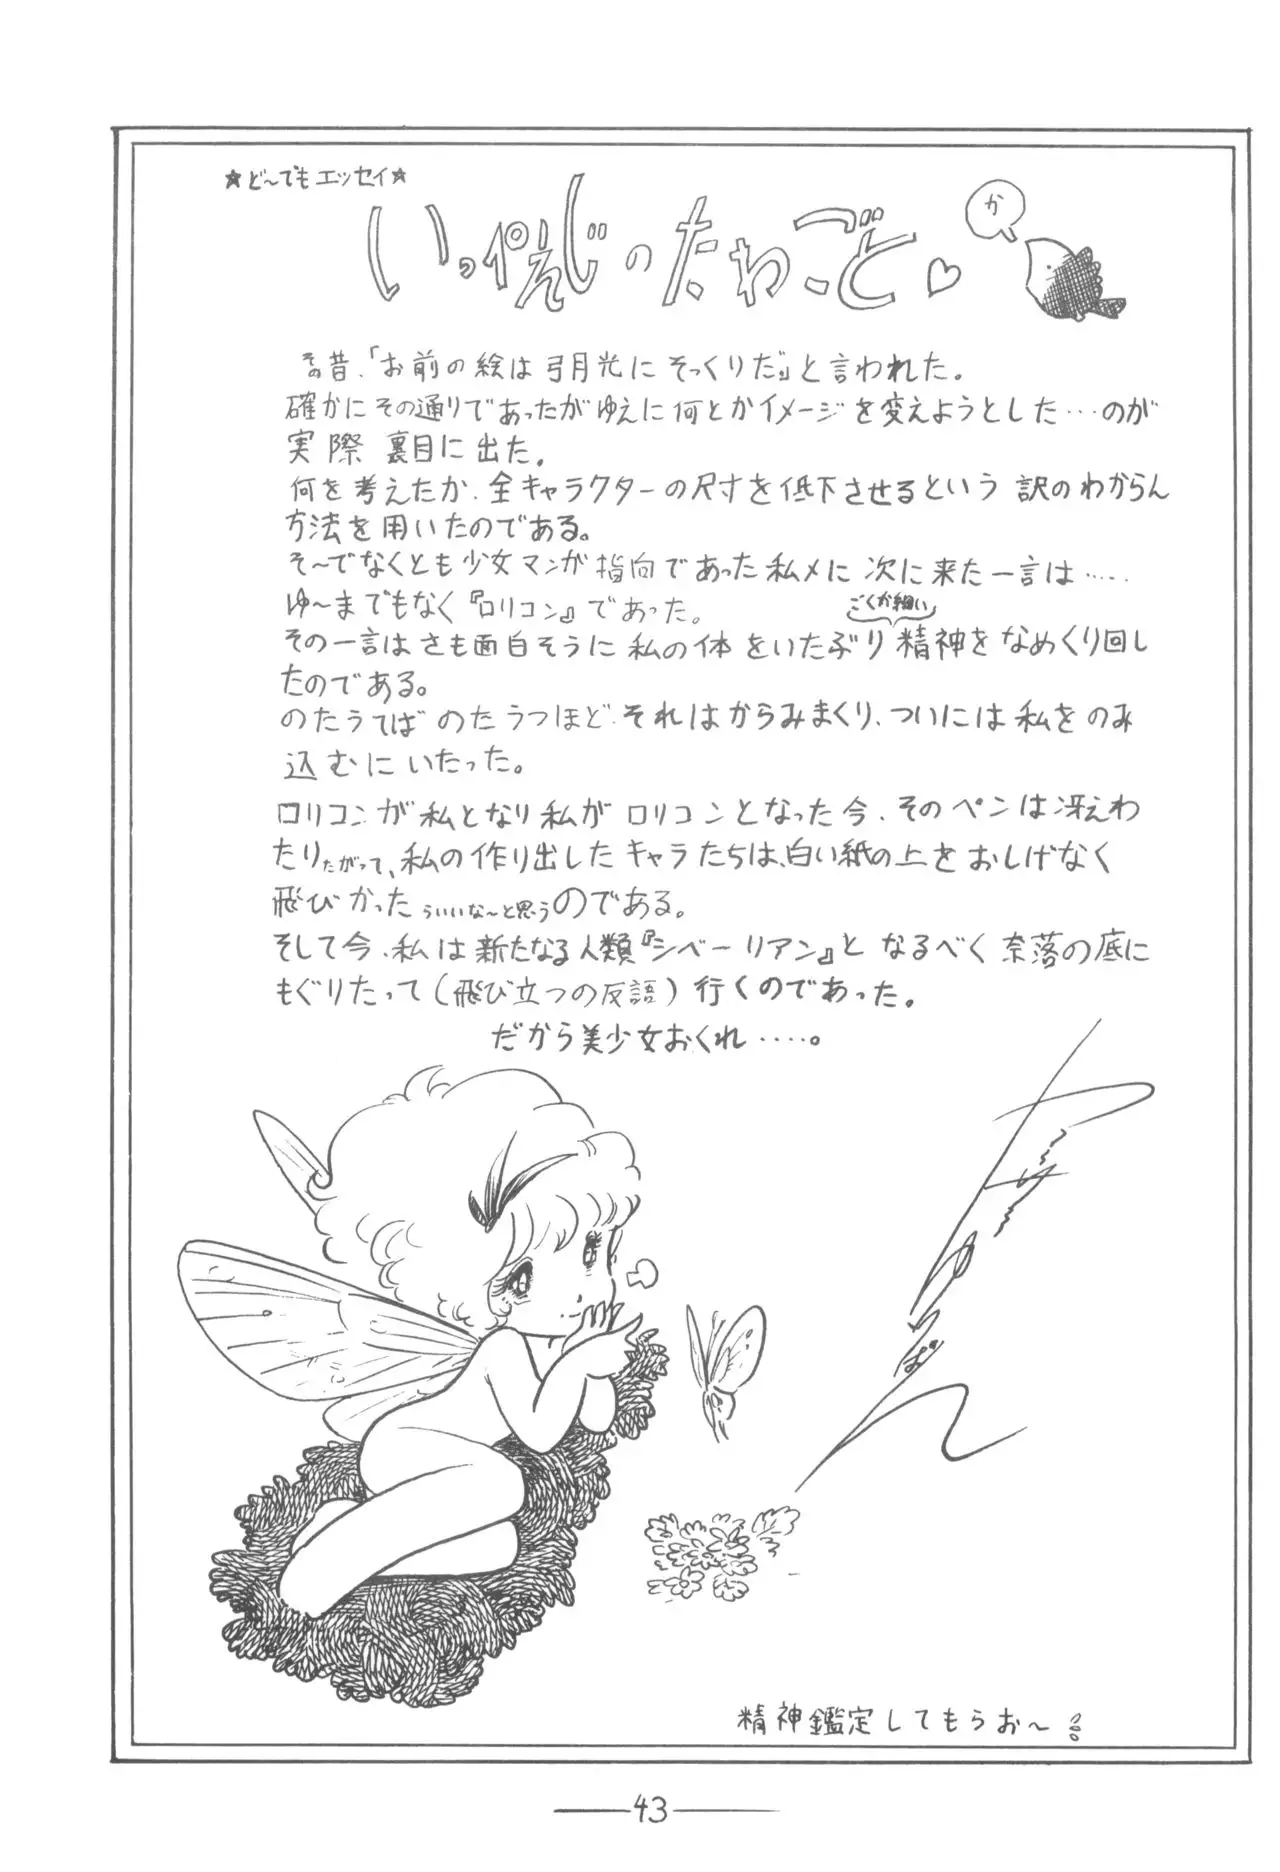 ☆ど〜でもエッセイ☆
いっぺえじのたわごと♡
か
その昔、「お前の絵は弓月光にそっくりだ」と言われた。
確かにその通りであったがゆえに何とかイメージを変えようとした…のが
実際裏目に出た。
何を考えたか、全キャラクターの尺寸を低下させるという訳のわからん
方法を用いたのである。
そ〜でなくとも少女マンガ指向であった私メに次に来た一言は……
ゆ〜までもなく『ロリコン』であった。
ごくか細い
その一言はさも面白そうに私の体をいたぶり精神をなめくり回し
たのである。
のたうてばのたうつほど、それはからみまくり、ついには私をのみ
込むにいたった。
ロリコンが私となり私がロリコンとなった今、そのペンは冴えわ
たりたがって、私の作り出したキャラたちは、白い紙の上をおしげなく
飛びかったぅぃぃな〜と思うのである。
そして今、私は新たなる人類『シベーリアン』となるべく奈落の底に
もぐりたって(飛び立つの反語)行くのであった。
だから美少女おくれ……。
精神鑑定してもらお〜
43